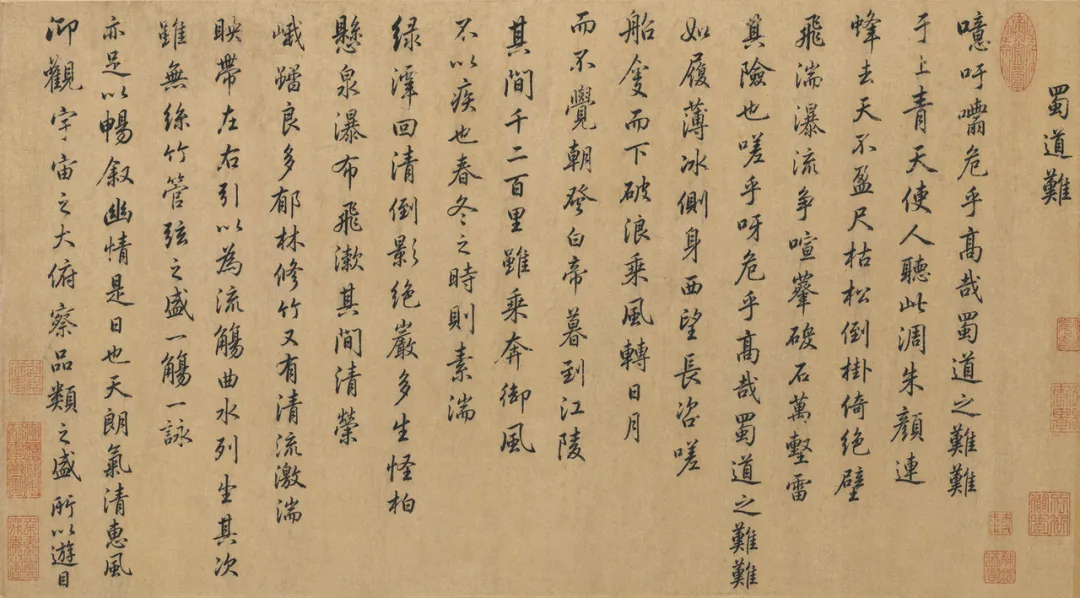 蜀道難
噫吁嚱危乎高哉蜀道之難難
于上青天使人聽此凋朱顏連
峰去天不盈尺枯松倒掛倚絕壁
飛湍瀑流爭喧石萬壑雷
其險也嗟乎呀危乎高哉蜀道之難難
如履薄冰側身西望長咨嗟
船而下破浪乘風轉日月
而不覺朝發白帝暮到江陵
其間千二百里雖乘奔御風
不以疾也春冬之時則素湍
绿潭回清倒影絕巖多生怪柏
懸泉瀑布飛漱其間清榮
峨良多郁林修竹又有清流激湍
映帶左右引以為流觴曲水列坐其次
雖無絲竹管弦之盛一觴一詠
亦足以暢叙幽情是日也天朗氣清惠風
仰觀宇宙之大俯察品類之盛所以遊目